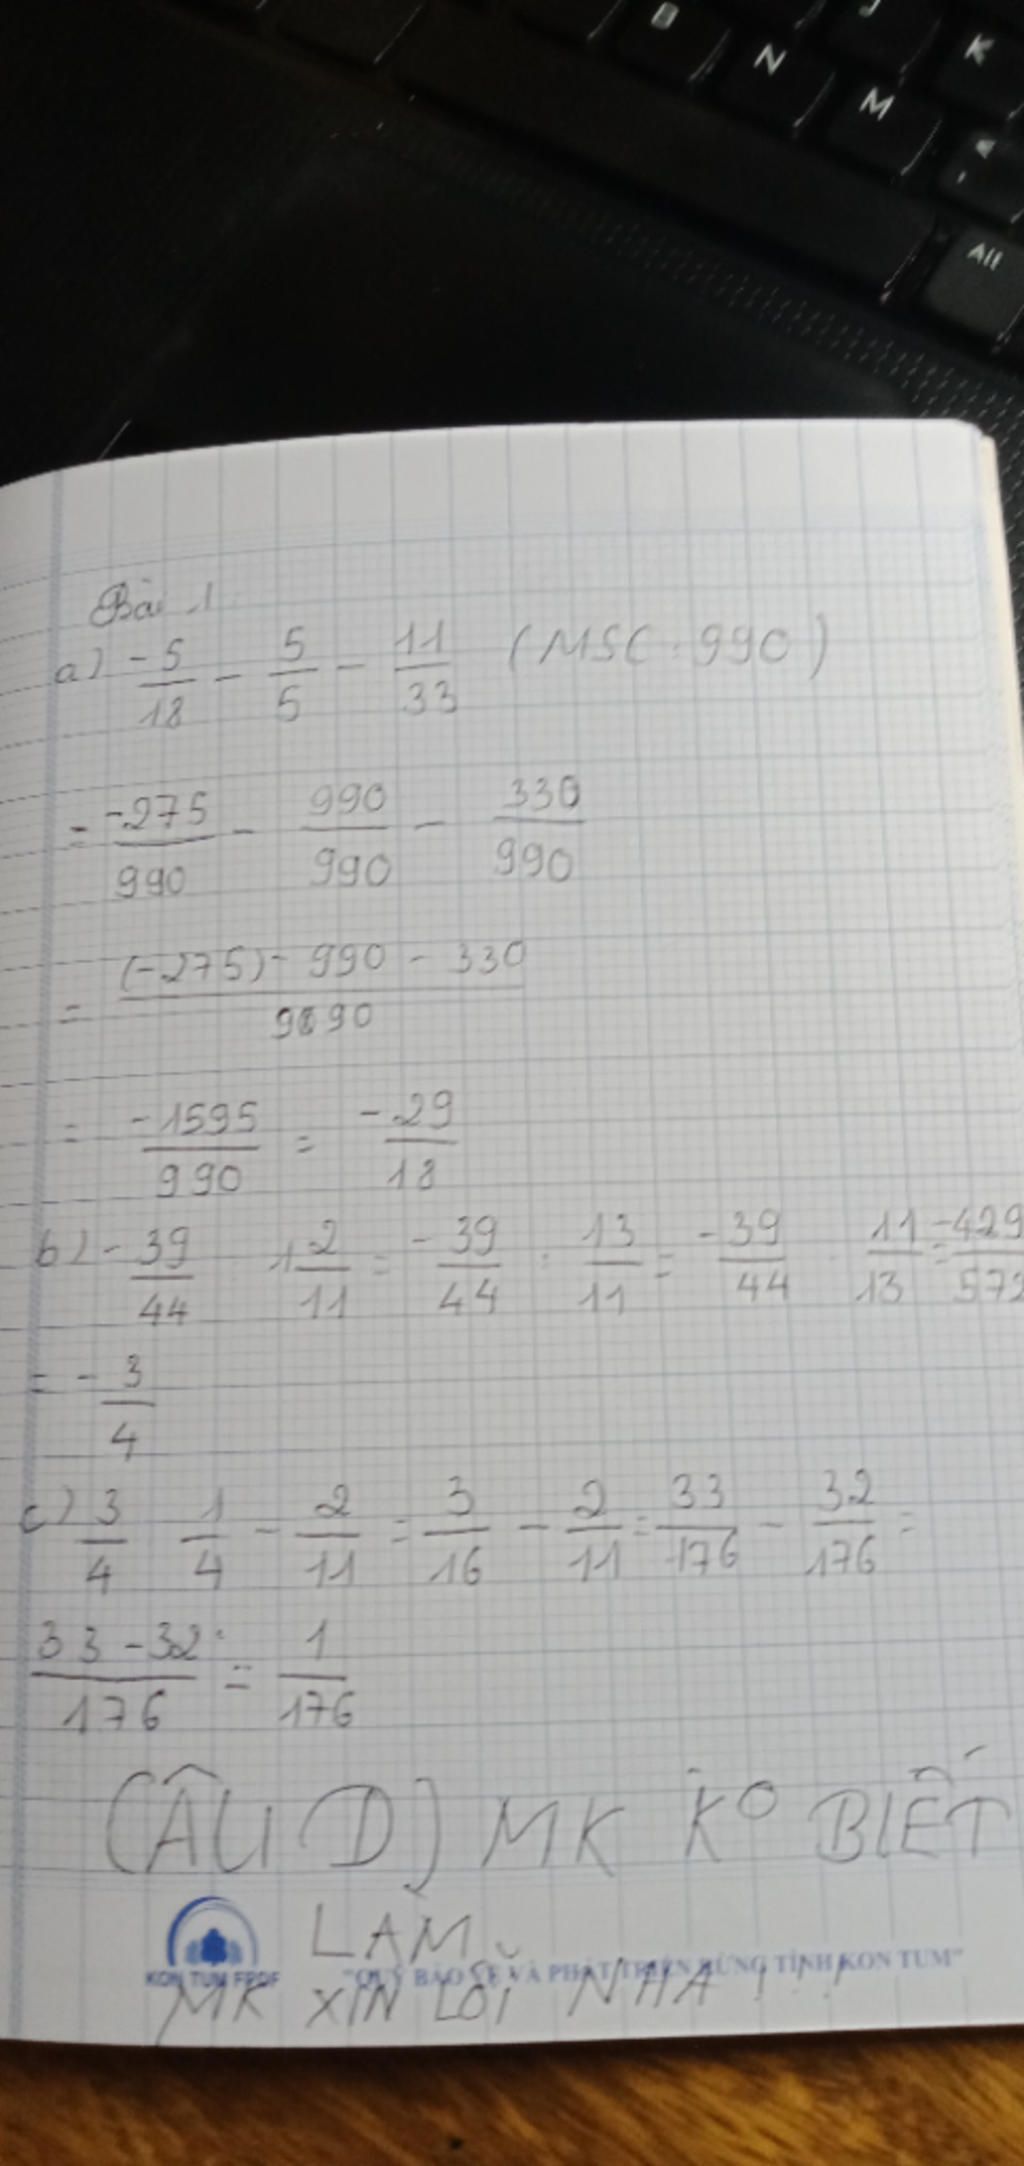 N
M
K
Alt
Bài 1
a) -5/18 - 5/5 - 11/33 (MSC: 990)
= -275/990 - 990/990 - 330/990
= (-275) - 990 - 330 / 990
= -1595/990 = -29/18
b) -39/44 1 2/11 = -39/44 : 13/11 = -39/44 . 11/13 = -429/572
= -3/4
c) 3/4 1/4 - 2/11 = 3/16 - 2/11 = 33/176 - 32/176 =
33 - 32/176 = 1/176
(CÂU D) MK KO BIẾT
LÀM.
KON TUM FPDF "QUỸ BẢO VỆ VÀ PHÁT TRIỂN RỪNG TỈNH KON TUM"
MK XIN LỖI NHA!!!